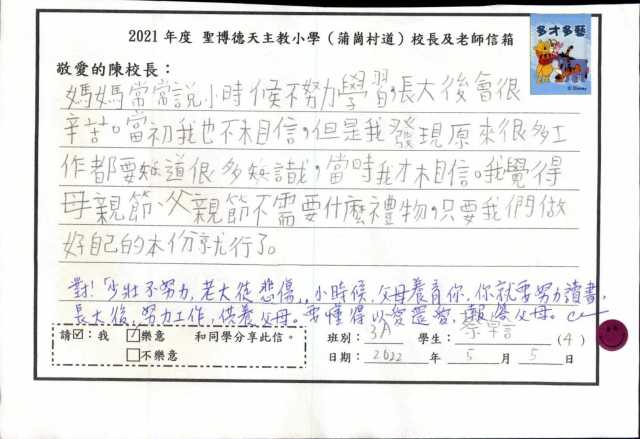 2021 年度 聖博德天主教小學（蒲崗村道）校長及老師信箱
多才多藝
© Disney
敬愛的陳校長：
媽媽常常說小時候不努力學習，長大後會很
辛苦。當初我也不相信，但是我發現原來很多工
作都要知道很多知識，當時我才相信。我覺得
母親節、父親節不需要什麼禮物，只要我們做
好自己的本份就行了。
對！「少壯不努力，老大徒悲傷」，小時候，父母養育你，你就要努力讀書，
長大後，努力工作，供養父母。要懂得以愛還愛，報答父母。
請☑：我 ☑樂意 和同學分享此信。 班別：3A 學生： (4)
□不樂意 日期：2022 年 5 月 5 日